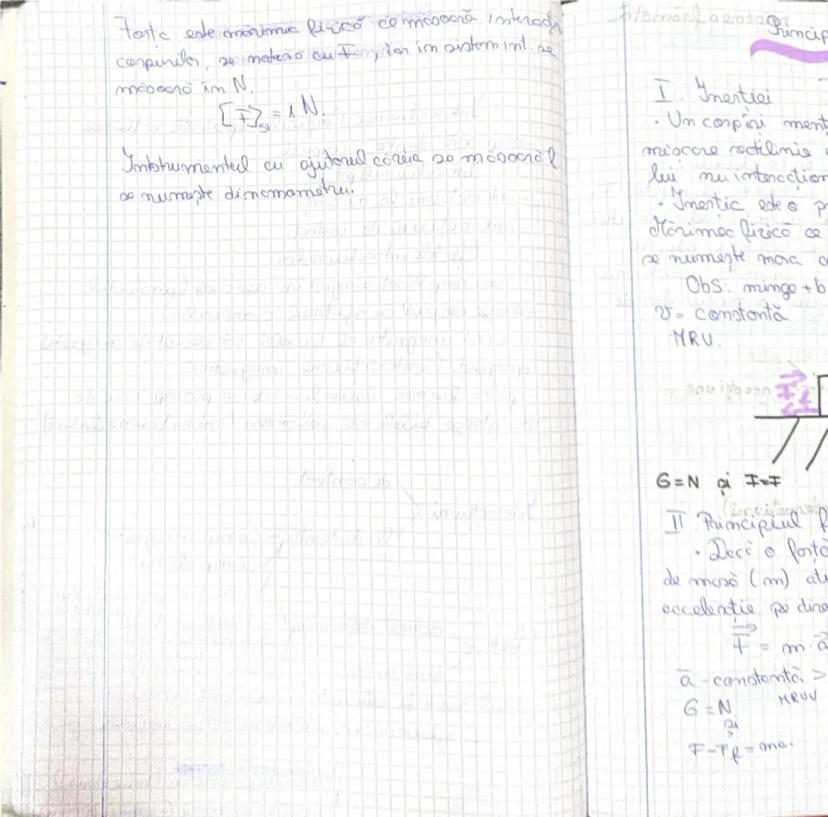 Forța este mărimea fizică ce măsoară interacți
corpurilor, se notează cu F, iar în sistem int. se
măsoară în N.
[F]SI = 1 N.
Instrumentul cu ajutorul căreia se măsoară
se numește dinamometru.
Princip
I. Inerției
• Un corp își menț
mișcare rectilinie
lui nu interacțion
• Inerția este o pr
Mărimea fizică ce
se numește masa
Obs: minge + b
v = constantă
MRU.
F
G = N și F = F
II Principiul f
• Dacă o forță
de masă (m) at
accelerație pe dire
F = m · a
a - constantă >
MRUV
G = N
și
F - Ff = ma.